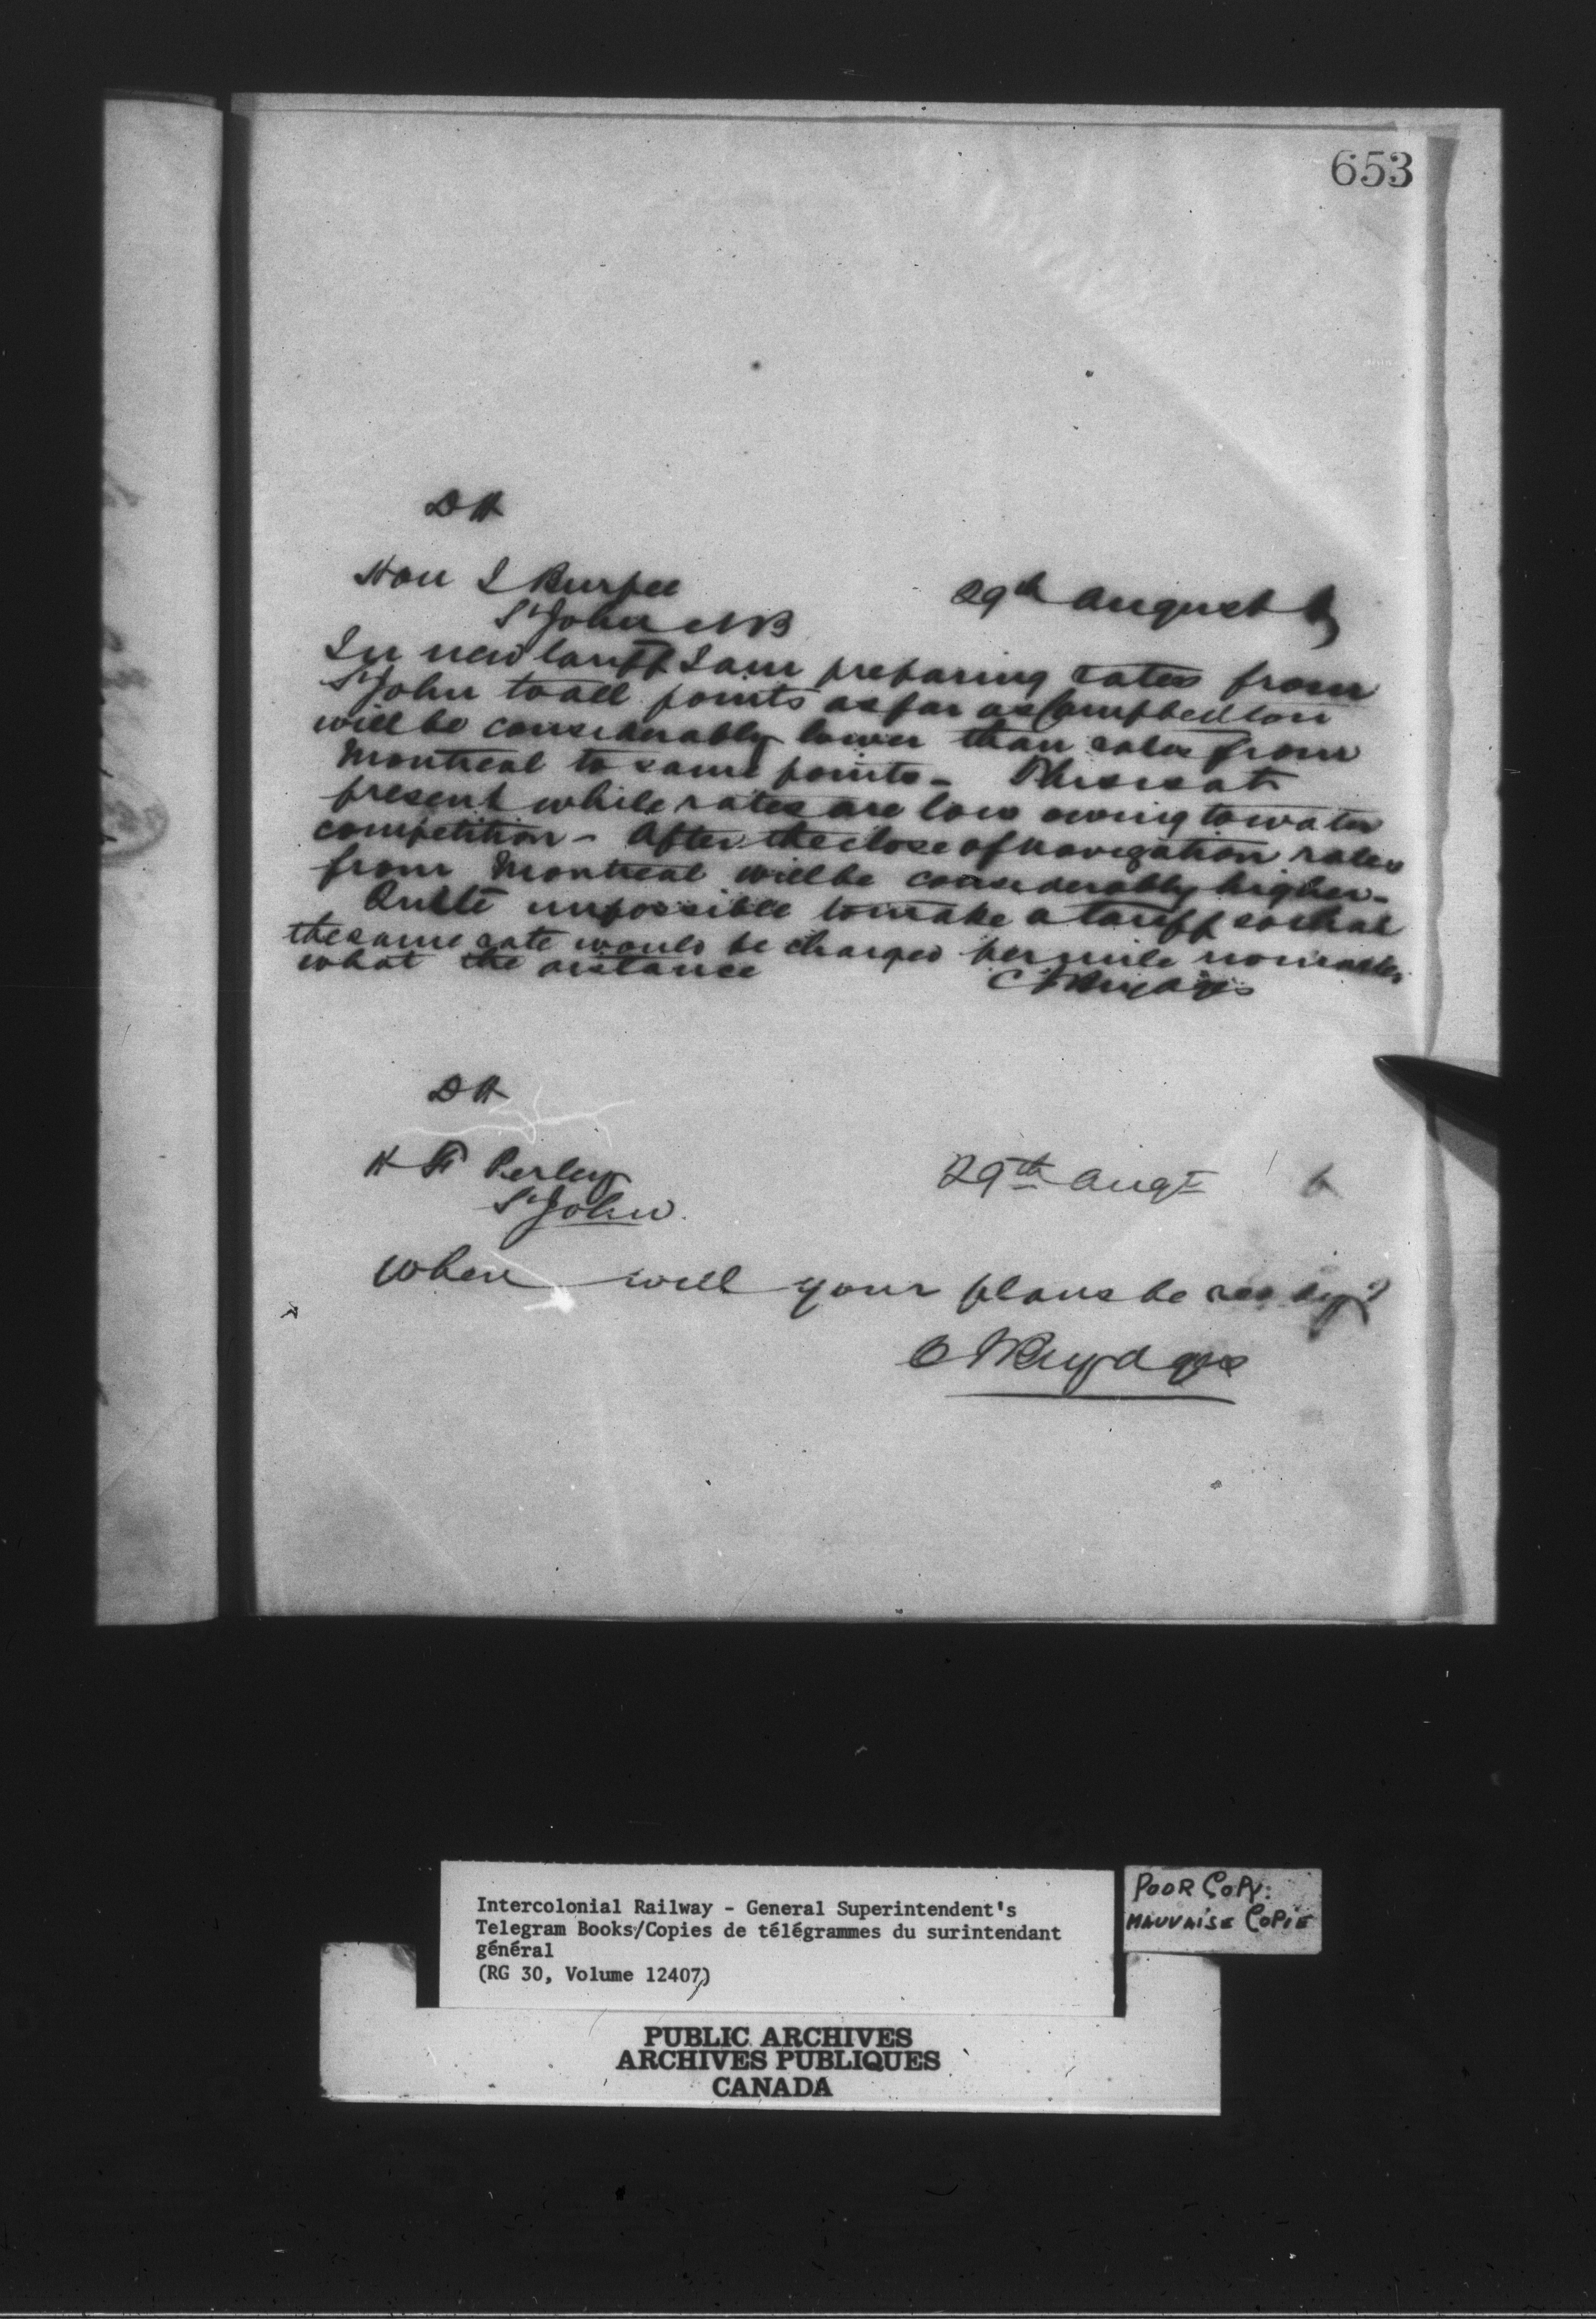 653
DH
Hon I Burpee
29th August 6
St John NB
In new tariff I am preparing rates from
St John to all points as far as Campbellton
will be considerably lower than rates from
Montreal to same points - This is at
present while rates are low owing to water
competition - After the close of navigation rates
from Montreal will be considerably higher -
Quite impossible to make a tariff so that
the same rate would be charged per mile no matter
what the distance
CJ Brydges
DH
H F Perley
29th Augt 6
St John.
When will your plans be ready?
CJ Brydges
Intercolonial Railway - General Superintendent's
Telegram Books/Copies de télégrammes du surintendant
général
(RG 30, Volume 12407)
POOR COPY:
MAUVAISE COPIE
PUBLIC ARCHIVES
ARCHIVES PUBLIQUES
CANADA